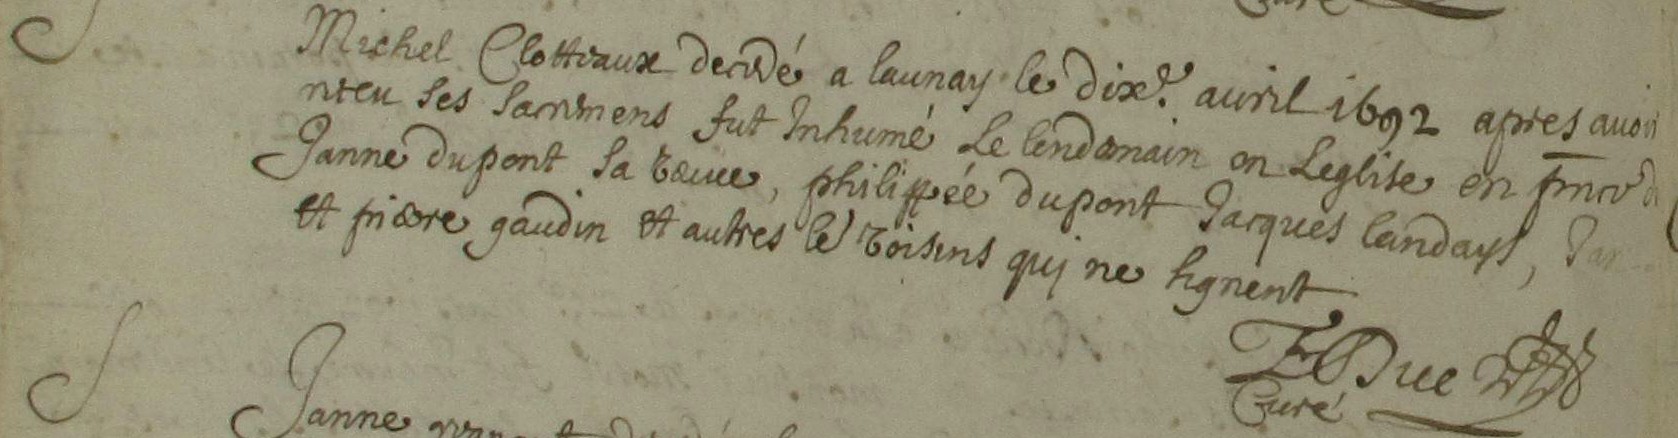 Curé
Michel Clottiaux decedé a launay le dixe. auril 1692 apres auoir
receu ses sacremens fut Inhumé Le lendemain en Leglise en pnce de
Janne dupont sa veuue, philippée dupont Jacques landays, Jan
et pierre gaudin et autres le voisins qui ne signent
Duce
Curé
Janne